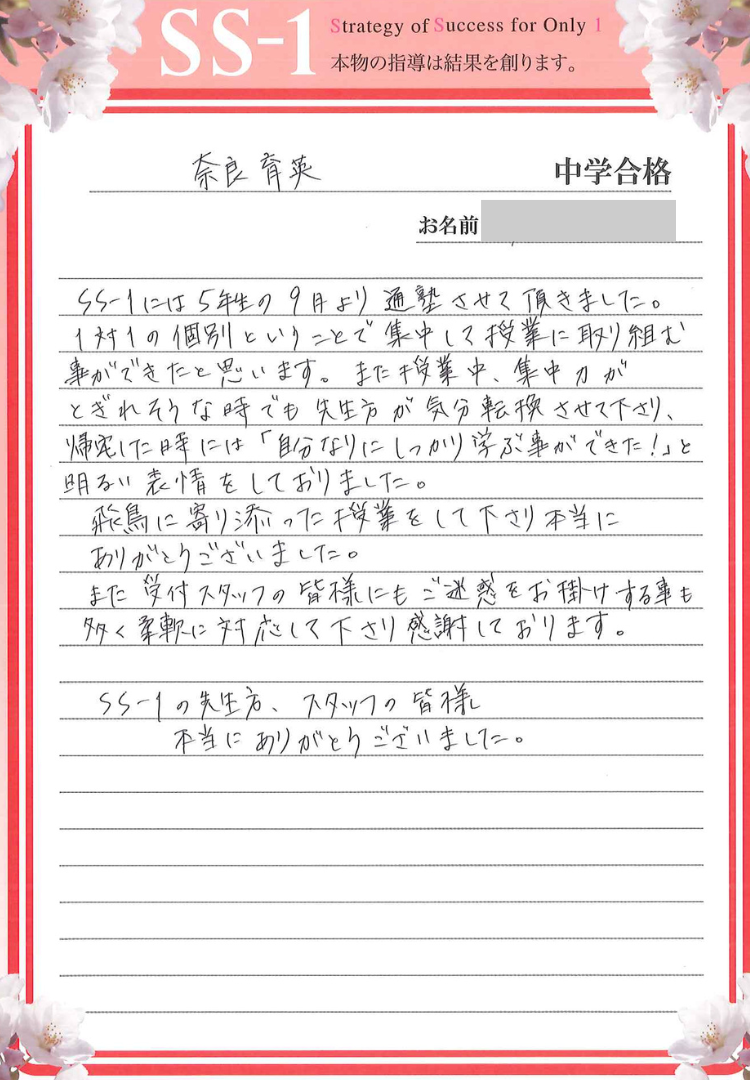 SS-1
Strategy of Success for Only 1
本物の指導は結果を創ります。
奈良育英 中学合格
お名前
SS-1には5年生の9月より通塾させて頂きました。
1対1の個別ということで集中して授業に取り組む
事ができたと思います。また授業中、集中力が
とぎれそうな時でも先生方が気分転換させて下さり、
帰宅した時には「自分なりにしっかり学ぶ事ができた!」と
明るい表情をしておりました。
飛鳥に寄り添った授業をして下さり本当に
ありがとうございました。
また受付スタッフの皆様にもご迷惑をお掛けする事も
多く柔軟に対応して下さり感謝しております。
SS-1の先生方、スタッフの皆様
本当にありがとうございました。